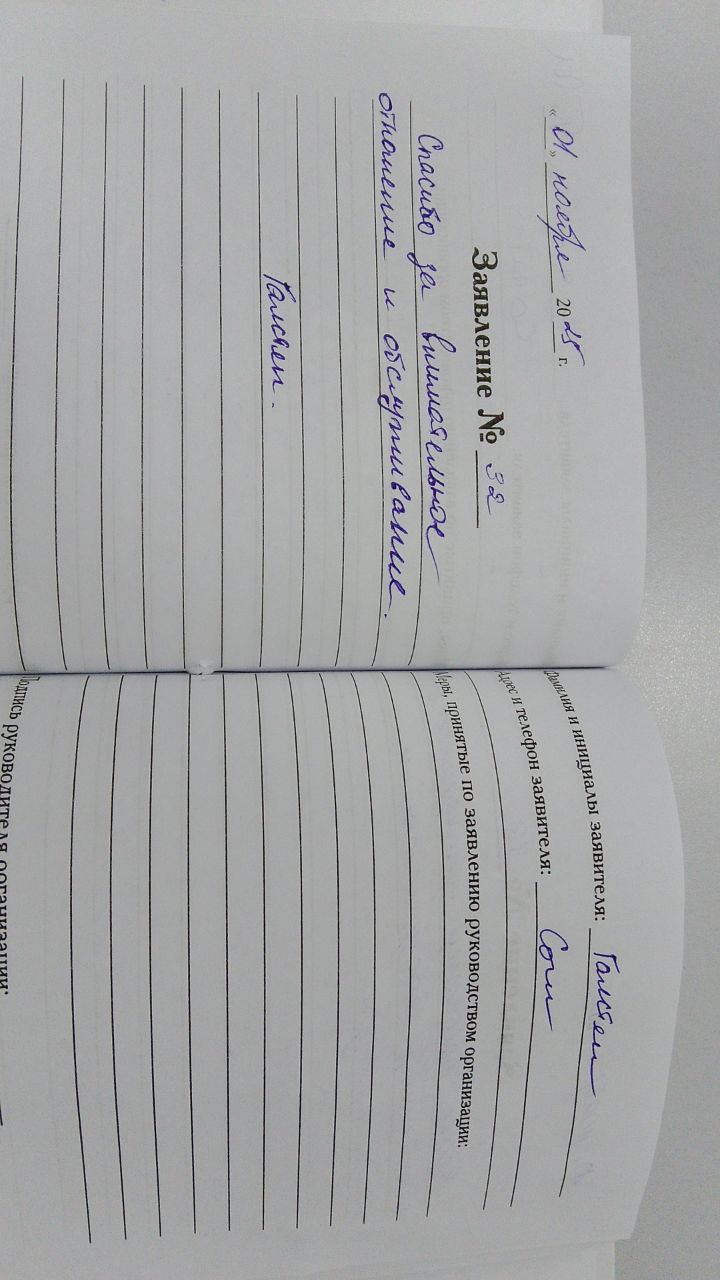 «01» ноября 2025 г.
Заявление № 32
Спасибо за внимательное
отношение и обслуживание.
Галстян.
Фамилия и инициалы заявителя: Галстян
Адрес и телефон заявителя: Сочи
Меры, принятые по заявлению руководством организации:
Подпись руководителя организации: